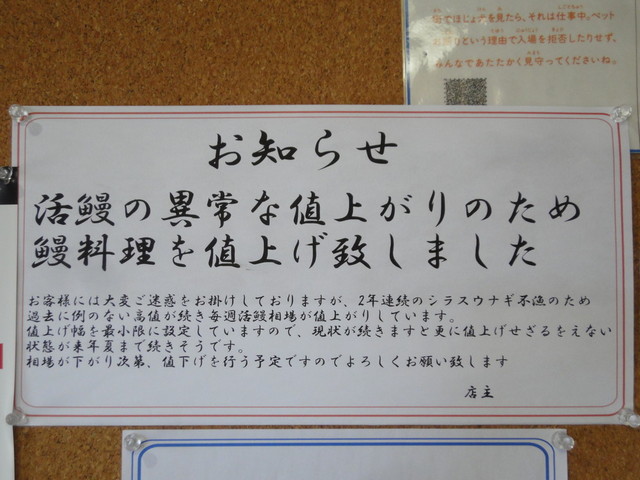 街でほじょ犬を見たら、それは仕事中。ペット
という理由で入場を拒否したりせず、
みんなであたたかく見守ってくださいね。
お知らせ
活鰻の異常な値上がりのため
鰻料理を値上げ致しました
お客様には大変ご迷惑をお掛けしておりますが、2年連続のシラスウナギ不漁のため
過去に例のない高値が続き毎週活鰻相場が値上がりしています。
値上げ幅を最小限に設定していますので、現状が続きますと更に値上げせざるをえない
状態が来年夏まで続きそうです。
相場が下がり次第、値下げを行う予定ですのでよろしくお願い致します
店主